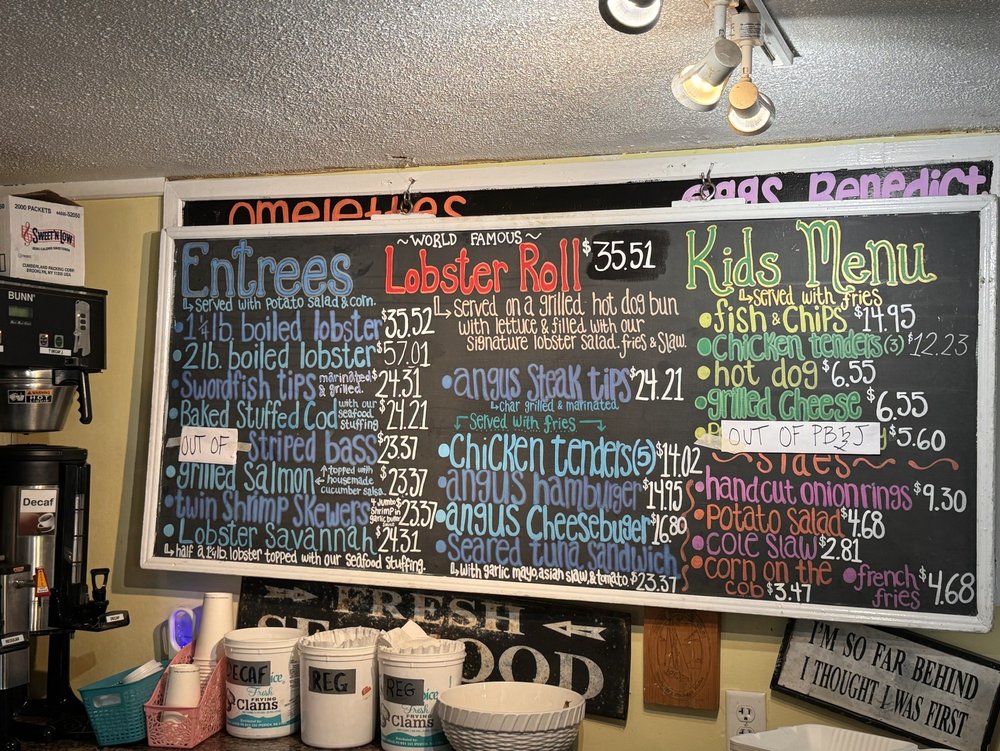 omelettes
eggs Benedict
Entrees
Served with Potato Salad & corn.
•1¼lb. boiled lobster $35.52
•2lb. boiled lobster $57.01
•Swordfish tips marinated & grilled. $24.31
•Baked Stuffed Cod with our seafood stuffing $24.21
OUT OF striped bass $23.37
•grilled Salmon topped with housemade cucumber salsa. $23.37
•twin Shrimp Skewers 4 Jumbo Shrimp in garlic butter $23.37
•Lobster Savannah $24.31
half a 1¼lb. lobster topped with our seafood stuffing.
~WORLD FAMOUS~
Lobster Roll $35.51
Served on a grilled hot dog bun
with lettuce & filled with our
signature lobster salad. fries & slaw.
•angus Steak tips $24.21
char grilled & marinated.
Served with fries
•Chicken tenders(5) $14.02
•angus hamburger $14.95
•angus Cheesebuger $16.80
•Seared tuna Sandwich
with garlic mayo, asian slaw, & tomato. $23.37
Kids Menu
served with fries
•fish & chips $14.95
•Chicken tenders (3) $12.23
•hot dog $6.55
•grilled Cheese $6.55
OUT OF PB&J $5.60
~Sides~
•hand cut onion rings $9.30
•Potato Salad $4.68
•Cole Slaw $2.81
•corn on the cob $3.47
•french fries $4.68
2000 PACKETS
Sweet'N Low
CUMBERLAND PACKING CORP.
BROOKLYN, NY 11205
BUNN
Decaf
REGULAR
DECAF
Fresh
FRYING
Clams
REG
REG
Fresh
FRYING
Clams
FRESH
SEAFOOD
I'M SO FAR BEHIND
I THOUGHT I WAS FIRST